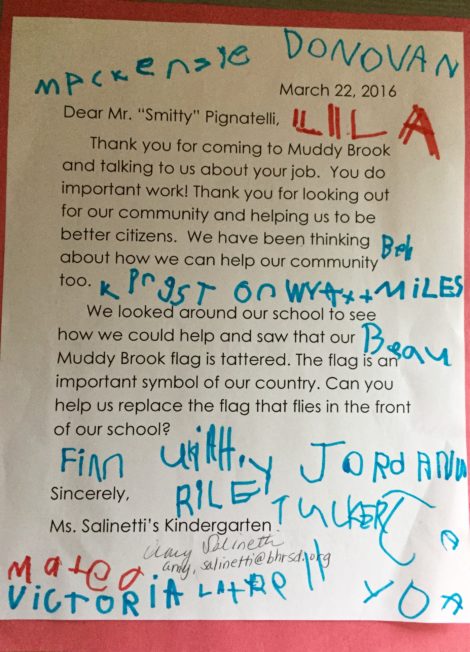 MACKENZIE DONOVAN
March 22, 2016
Dear Mr. "Smitty" Pignatelli, LILA
Thank you for coming to Muddy Brook
and talking to us about your job. You do
important work! Thank you for looking out
for our community and helping us to be
better citizens. We have been thinking
about how we can help our community
too. MiLES
We looked around our school to see
how we could help and saw that our Beau
Muddy Brook flag is tattered. The flag is an
important symbol of our country. Can you
help us replace the flag that flies in the front
of our school?
Finn JORdANN
Sincerely, RILEY TUCKER
Ms. Salinetti's Kindergarten
Amy Salinetti
amy.salinetti@bhrsd.org
Mateo
ViCTORiA